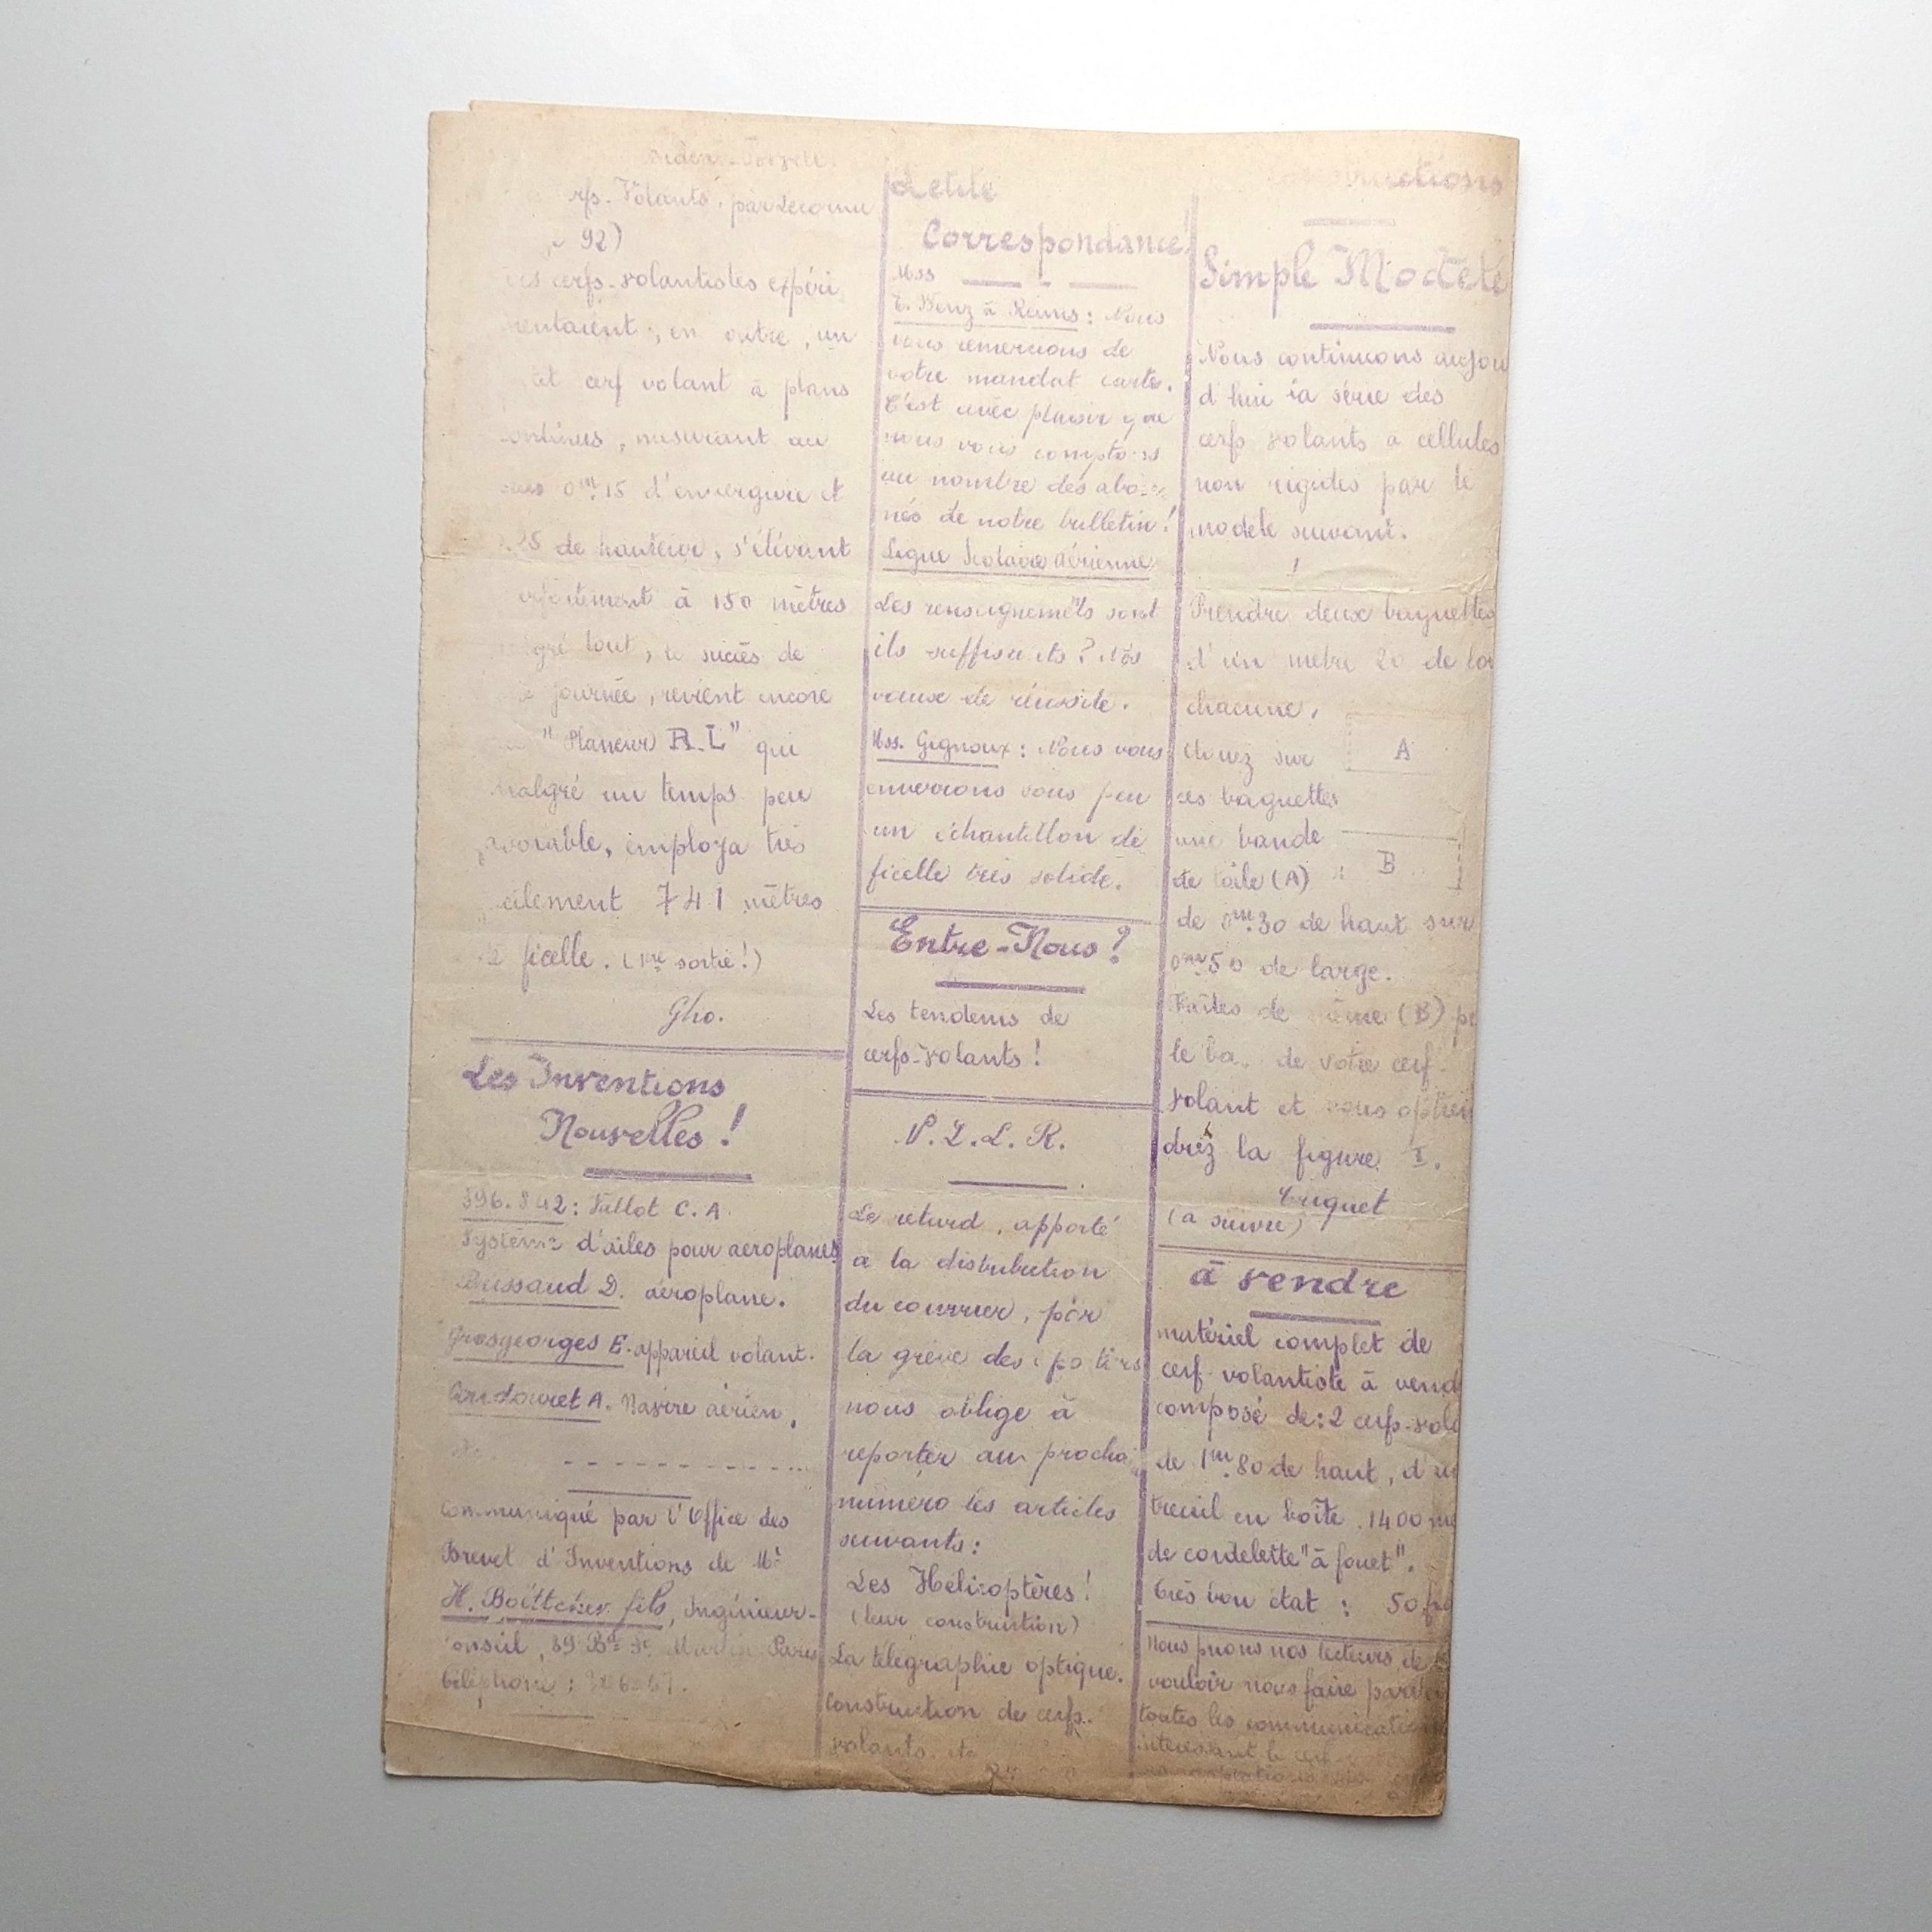 rfs-Volants, par Lecornu
92)
cerfs-volantistes expéri
mentaient, en outre, un
cerf volant à plans
mesurant au
0m.15 d'envergure et
25 de hauteur, s'élevant
à 150 mètres
tout, le succès de
journée, revient encore
"Planeur R.L" qui
malgré un temps peu
favorable, employa très
cilement 741 mètres
de ficelle. (1re sortie!)
Gho.
Les Inventions
Nouvelles!
396.842: Vallot C.A.
Système d'ailes pour aeroplanes
Bussaud D. aéroplane.
Grosgeorges E. appareil volant.
A. Navire aérien.
Communiqué par l'Office des
Brevet d'Inventions de Mr
H. Boettcher fils, Ingénieur-
onseil, 39 Bd St Martin Paris
Téléphone:
Petite
Correspondance
Mss
E. Benz à Reims: Nous
vous remercions de
votre mandat carte.
C'est avec plaisir que
nous vous comptons
au nombre des abon-
nés de notre bulletin!
Ligue Scolaire Aérienne
Les renseignements sont
ils suffisants? Nos
vœux de réussite.
Mss. Gignoux: Nous vous
enverrons sous peu
un échantillon de
ficelle très solide.
Entre-Nous?
Les tendems de
cerfs-volants!
N.L.L.R.
Le retard, apporté
a la distribution
du courrier, par
la grève des postiers
nous oblige à
reporter au prochain
numéro les articles
suivants:
Les Hélicoptères!
(leur construction)
La télégraphie optique.
Construction de cerfs-
volants. etc
ructions
Simple Modèle
Nous continuons aujour
d'hui la série des
cerfs volants a cellules
non rigides par le
modele suivant.
!
Prendre deux baguettes
d'un metre 20 de lon
chacune,
Clouez sur
ces baguettes
une bande
de toile (A)
A
B
de 0m.30 de haut sur
0m50 de large.
Faites de même (B) pr
le bas de votre cerf-
volant et vous optien
drez la figure I.
(a suivre)
à vendre
matériel complet de
cerf-volantiste à vend
composé de: 2 cerfs-vola
de 1m.80 de haut, d'un
treuil en boîte, 1400 m
de cordelette "à fouet".
très bon état: 50 f
Nous prions nos lecteurs de
vouloir nous faire parve
toutes les communication
interessant le